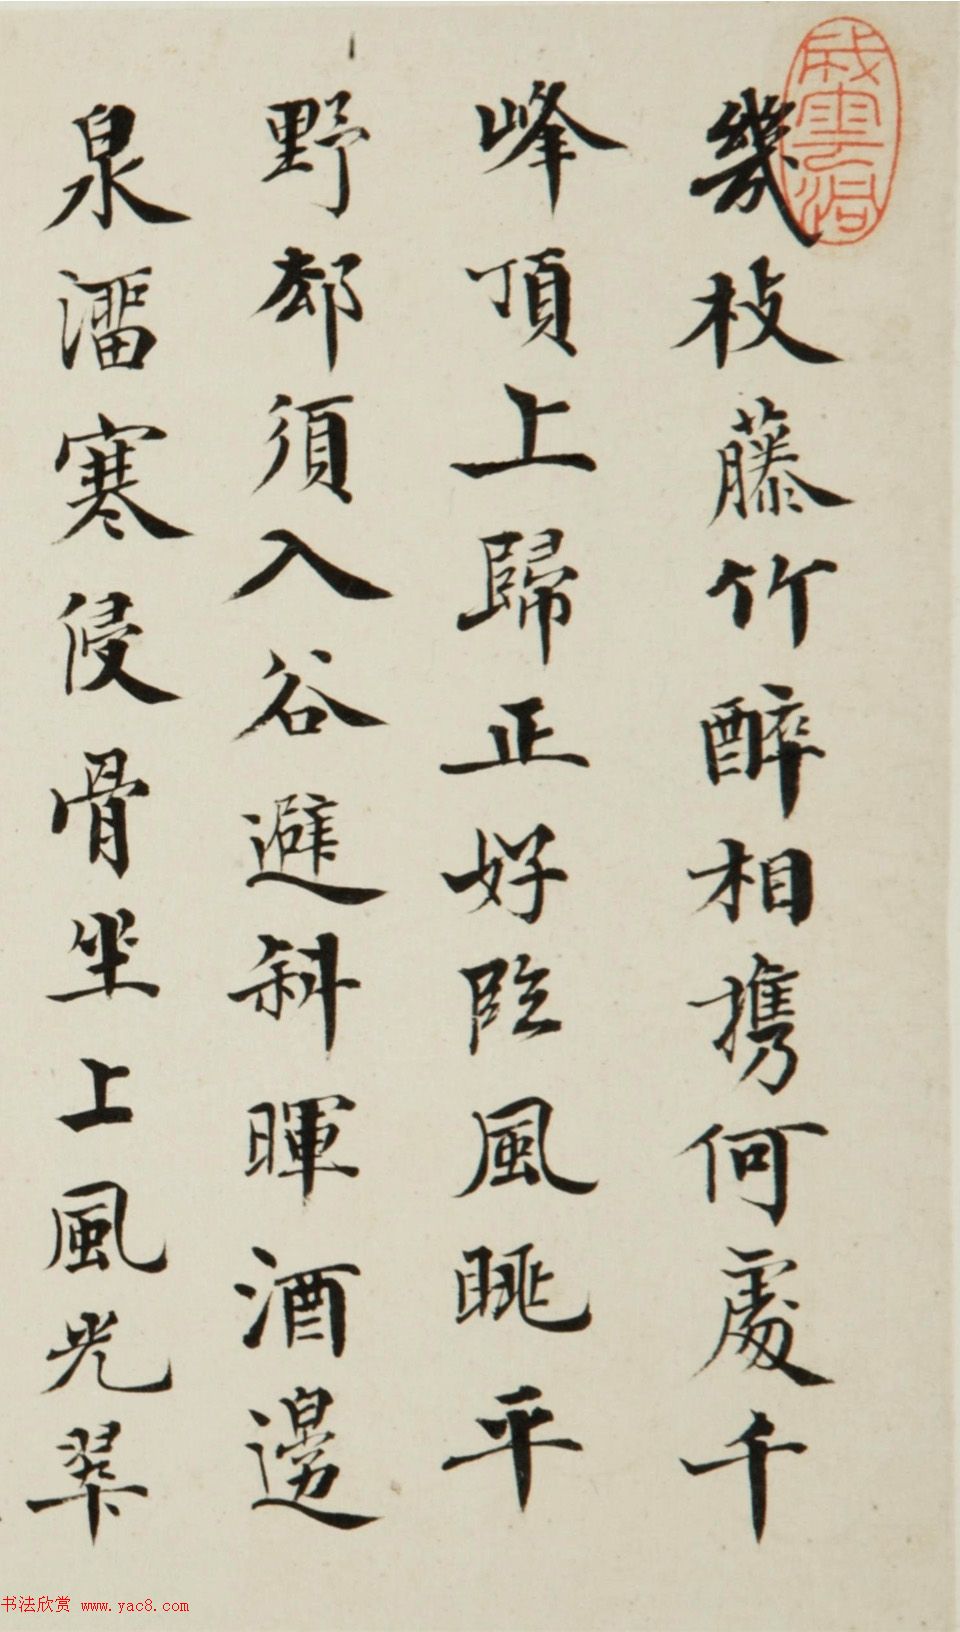 幾枝藤竹醉相攜何處千
峰頂上歸正好臨風眺平
野却須入谷避斜暉酒邊
泉溜寒侵骨坐上風光翠
书法欣赏 www.yac8.com